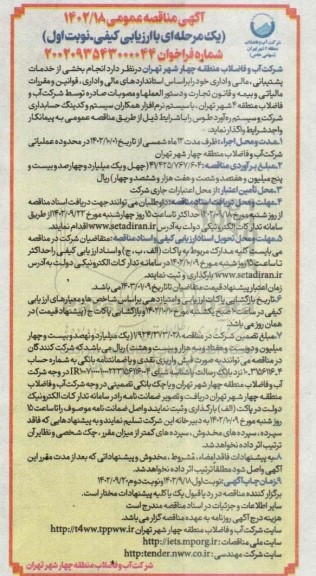 شرکت آب و فاضلاب
منطقه ۴ شهر تهران
(سهامی خاص)
آگهی مناقصه عمومی ۱۴۰۲/۱۸
(یک مرحله‌ای با ارزیابی کیفی-نوبت اول)
شماره فراخوان ۲۰۰۲۰۹۳۵۴۳۰۰۰۰۴۴
شرکت آب و فاضلاب منطقه چهار شهر تهران در نظر دارد انجام بخشی از خدمات
پشتیبانی، مالی و اداری خود را بر اساس استانداردهای مالی و اداری، قوانین و مقررات
مالیاتی و بیمه و قانون تجارت و دستورالعملها و مصوبات صادره توسط شرکت آب و
فاضلاب منطقه ۴ شهر تهران، با سیستم نرم افزار همکاران سیستم و کدینگ حسابداری
شرکت و سیستم ره آورد طوس را با شرایط ذیل از طریق مناقصه عمومی به پیمانکار
واجد شرایط واگذار نماید.
۱.مدت و محل اجراء: ظرف مدت ۱۲ ماه شمسی از تاریخ ۱۴۰۲/۱۰/۰۱ در محدوده عملیاتی
شرکت آب و فاضلاب منطقه چهار شهر تهران
۲.مبلغ برآوردی مناقصه: (چهل و یک میلیارد و چهارصد و بیست و
پنج میلیون و هفتصد و شصت و هفت هزار و ششصد و چهار) ریال
۳.محل تأمین اعتبار: از محل اعتبارات جاری شرکت
۴.مهلت و محل دریافت اسناد مناقصه: داوطلبان می توانند جهت دریافت اسناد مناقصه
از روز شنبه مورخ ۱۴۰۲/۰۹/۱۸ حداکثر تا ساعت ۱۵ روز چهارشنبه مورخ ۱۴۰۲/۰۹/۲۲ از طریق
سامانه تدارکات الکترونیکی دولت به آدرس www.setadiran.ir اقدام نمایند.
۵.مهلت و محل تحویل اسناد ارزیابی کیفی و اسناد مناقصه: متقاضیان شرکت در مناقصه
می بایست کلیه مدارک مربوط به پاکات (الف، ب، ج) و اسناد ارزیابی کیفی را حداکثر
تا ساعت ۱۵ روز شنبه مورخ ۱۴۰۲/۱۰/۰۹ در سامانه تدارکات الکترونیکی دولت به آدرس
www.setadiran.ir بارگذاری و ثبت نمایند.
زمان اعتبار پیشنهاد قیمت متقاضیان تا تاریخ ۱۴۰۳/۰۱/۰۹ می باشد.
۶.تاریخ بازگشایی پاکات: ارزیابی و امتیازدهی بر اساس شاخص ها و معیارهای ارزیابی
کیفی در ساعت ۱۰ صبح یکشنبه مورخ ۱۴۰۲/۱۰/۱۰ و بازگشایی پاکات ج (پیشنهاد قیمت) در
همان روز می باشد.
۷.مبلغ تضمین شرکت در مناقصه (یک میلیارد و نهصد و بیست و چهار
میلیون و دویست و هفتاد و سه هزار و بیست و هشت) ریال می باشد که شرکت کنندگان
در مناقصه می توانند به صورت فیش واریزی نقدی و یا ضمانتنامه بانکی به شماره حساب
نزد بانک رسالت با شناسه شبای در وجه شرکت
آب و فاضلاب منطقه چهار شهر تهران و یا چک بانکی تضمینی در وجه شرکت آب و فاضلاب
منطقه چهار شهر تهران دریافت و تصویر ضمانت نامه را در سامانه تدارکات الکترونیک
دولت در پاکت (الف) بارگذاری و ثبت نمایند و اصل ضمانت نامه موصوف را تا ساعت ۱۵
روز شنبه مورخ ۱۴۰۲/۱۰/۰۹ به دبیرخانه این شرکت تسلیم نمایند و به پیشنهادهایی که فاقد
سپرده، سپرده های مخدوش، سپرده های کمتر از میزان مقرر، چک شخصی و نظایر آن
ترتیب اثر داده نخواهد شد.
۸.به پیشنهادات فاقد امضاء، مشروط، مخدوش و پیشنهاداتی که بعد از مدت مقرر این
آگهی واصل شود مطلقاً ترتیب اثر داده نخواهد شد.
۹.زمان چاپ آگهی: نوبت اول ۱۴۰۲/۹/۱۸ و نوبت دوم ۱۴۰۲/۰۹/۲۰
برگزار کننده مناقصه در رد یا قبول یک یا کلیه پیشنهادات مختار است.
سایر اطلاعات و جزئیات در اسناد مناقصه مندرج است
هزینه درج آگهی روزنامه به عهده مناقصه گزار می باشد.
سایت شرکت آب و فاضلاب منطقه چهار شهر تهران http://t4ww.tppww.ir
سایت ملی مناقصات: http://iets.mporg.ir
سایت شرکت مهندسی: http:tender.nww.co.ir
شرکت آب و فاضلاب منطقه چهار شهر تهران